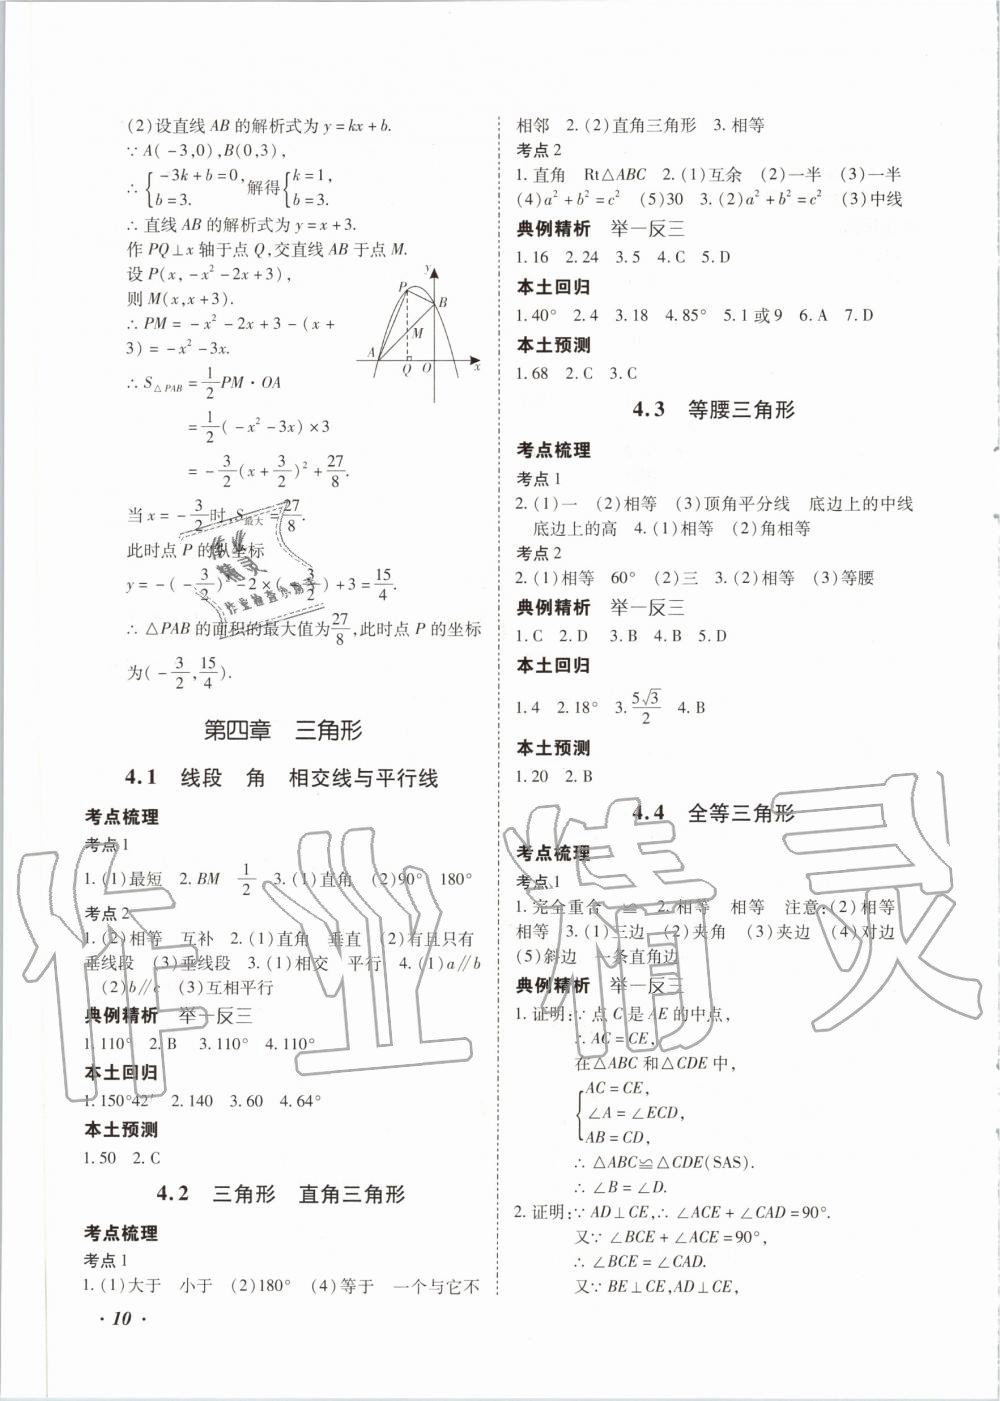 (2)设直线 AB 的解析式为 y=kx+b.
∵A(-3,0),B(0,3),
∴{-3k+b=0, b=3. 解得{k=1, b=3.
∴直线 AB 的解析式为 y=x+3.
作 PQ⊥x 轴于点 Q,交直线 AB 于点 M.
设 P(x,-x²-2x+3),
则 M(x,x+3).
∴PM=-x²-2x+3-(x+
3)=-x²-3x.
∴S△PAB=1/2 PM·OA
=1/2(-x²-3x)×3
=-3/2(x+3/2)²+27/8.
当 x=-3/2时,S最大=27/8.
此时点 P 的纵坐标
y=-(-3/2)²-2×(-3/2)+3=15/4.
∴△PAB 的面积的最大值为27/8,此时点 P 的坐标
为(-3/2,15/4).
y
P
B
M
A
Q
O
x
第四章 三角形
4.1 线段 角 相交线与平行线
考点梳理
考点1
1.(1)最短 2.BM 1/2 3.(1)直角 (2)90° 180°
考点2
1.(2)相等 互补 2.(1)直角 垂直 (2)有且只有
垂线段 (3)垂线段 3.(1)相交 平行 4.(1)a∥b
(2)b∥c (3)互相平行
典例精析 举一反三
1.110° 2.B 3.110° 4.110°
本土回归
1.150°42′ 2.140 3.60 4.64°
本土预测
1.50 2.C
4.2 三角形 直角三角形
考点梳理
考点1
1.(1)大于 小于 (2)180° (4)等于 一个与它不
·10·
相邻 2.(2)直角三角形 3.相等
考点2
1.直角 Rt△ABC 2.(1)互余 (2)一半 (3)一半
(4)a²+b²=c² (5)30 3.(2)a²+b²=c² (3)中线
典例精析 举一反三
1.16 2.24 3.5 4.C 5.D
本土回归
1.40° 2.4 3.18 4.85° 5.1或9 6.A 7.D
本土预测
1.68 2.C 3.C
4.3 等腰三角形
考点梳理
考点1
2.(1)一 (2)相等 (3)顶角平分线 底边上的中线
底边上的高 4.(1)相等 (2)角相等
考点2
2.(1)相等 60° (2)三 3.(2)相等 (3)等腰
典例精析 举一反三
1.C 2.D 3.B 4.B 5.D
本土回归
1.4 2.18° 3.5√3/2 4.B
本土预测
1.20 2.B
4.4 全等三角形
考点梳理
考点1
1.完全重合 ≌ 2.相等 相等 注意:(2)相等
相等 3.(1)三边 (2)夹角 (3)夹边 (4)对边
(5)斜边 一条直角边
典例精析 举一反三
1.证明:∵点 C 是 AE 的中点,
∴AC=CE,
在△ABC 和△CDE 中,
{AC=CE,
∠A=∠ECD,
AB=CD,
∴△ABC≌△CDE(SAS).
∴∠B=∠D.
2.证明:∵AD⊥CE,∴∠ACE+∠CAD=90°.
又∵∠BCE+∠ACE=90°,
∴∠BCE=∠CAD.
又∵BE⊥CE,AD⊥CE,
作业精灵
作业
精灵
作业检查小助手